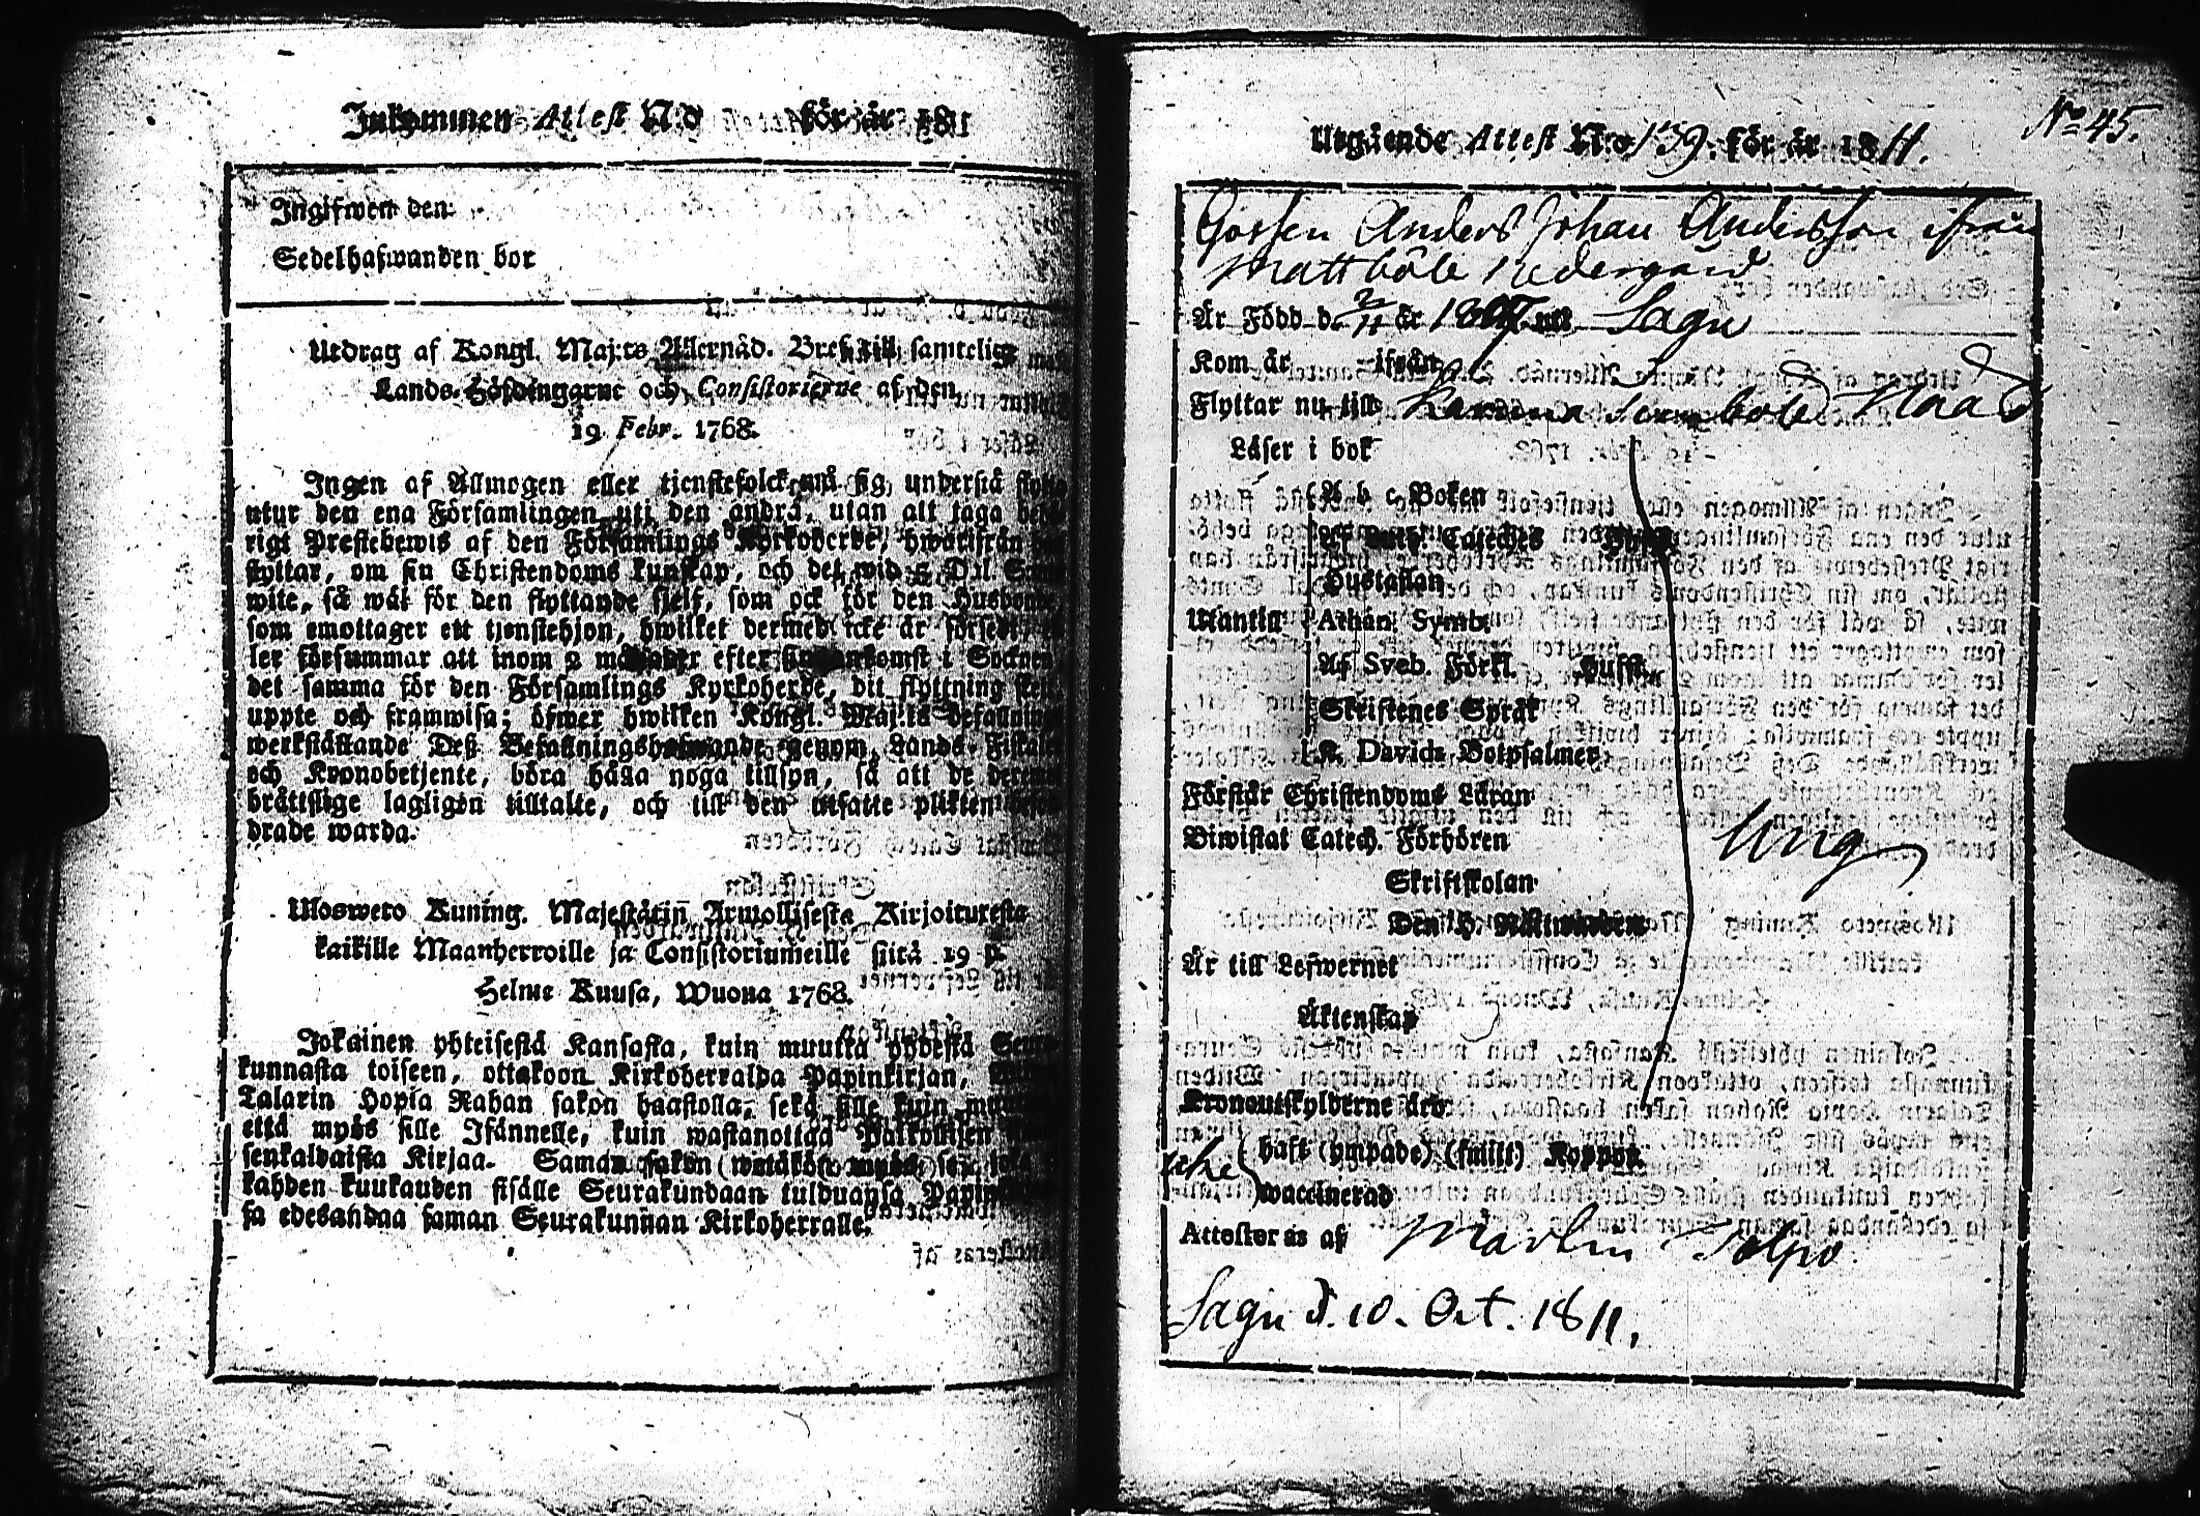 Inkommen Attest N:o för år 1811
Ingifwen den
Sedelhafwanden bor
Utdrag af Kongl. Maj:ts Allernåd. Bref till samtelige
Lands-Höfdingarne och Consistorierne af den
19 Febr. 1768.
Ingen af Allmogen eller tjenstefolck må sig understå flytta
utur den ena Församlingen uti den andra, utan att taga behö-
rigt Prestebewis af den Församlings Kyrkoherde, hwarifrån han
flyttar, om sin Christendoms kunskap, och det wid 2 D:l. S:mts
wite, så wäl för den flyttande sjelf, som ock för den Husbonde
som emottager ett tjenstehjon, hwilket dermed icke är försedt, el-
ler försummar att inom 2 månader efter sin ankomst i Socknen
det samma för den Församlings Kyrkoherde, dit flyttning sker,
uppte och framwisa; öfwer hwilken Kongl. Maj:ts befallning
werkställande Deß Befallningshafwande genom Lands-Fiskaler
och Kronobetjente, böra hålla noga tillsyn, så att de deremot
bråttslige lagligen tilltalte, och till den utsatte plikten
drade warda.
Ulosweto Kuning. Majestätin Armollisesta Kirjoituxesta
kaikille Maanherroille ja Consistoriumeille siitä 19 p.
Helme Kuusa, Wuona 1768.
Jokainen yhteisestä Kansasta, kuin muutta yhdestä Seura-
kunnasta toiseen, ottakoon Kirkoherralda Papinkirjan,
Talarin Hopia Rahan sakon haastolla, sekä sille kuin
että myös sille Isännelle, kuin wastanottaa Palkollisen
senkaldaista Kirjaa. Saman sakon (wetäkön myös) se,
kahden kuukauden sisälle Seurakundaan tulduansa
sa edesandaa saman Seurakunnan Kirkoherralle.
No 45.
Utgående Attest N:o 139. för år 1811.
Gossen Anders Johan Andersson ifrån
Mattböle Nedergård
Är Född d. 2/11 år 1807 uti Sagu
Kom år ifrån
Flyttar nu till
Läser i bok
A b c Boken
Af Luth. Cateches
Hustaflan
Utantill Athan. Symb.
Af Sveb. Förkl.
Skriftenes Språk
K. Davids Botpsalmer
Förstår Christendoms Läran
Biwistat Catech. Förhören
Ung
Skriftskolan
Den H. Nattwarden
Är till Lefwernet
Äktenskap
Kronoutskylderne äro
haft (ympade) (smitt) Koppor
waccinerad
Attesteras af Martin Tolpo
Sagu d. 10. Oct. 1811.